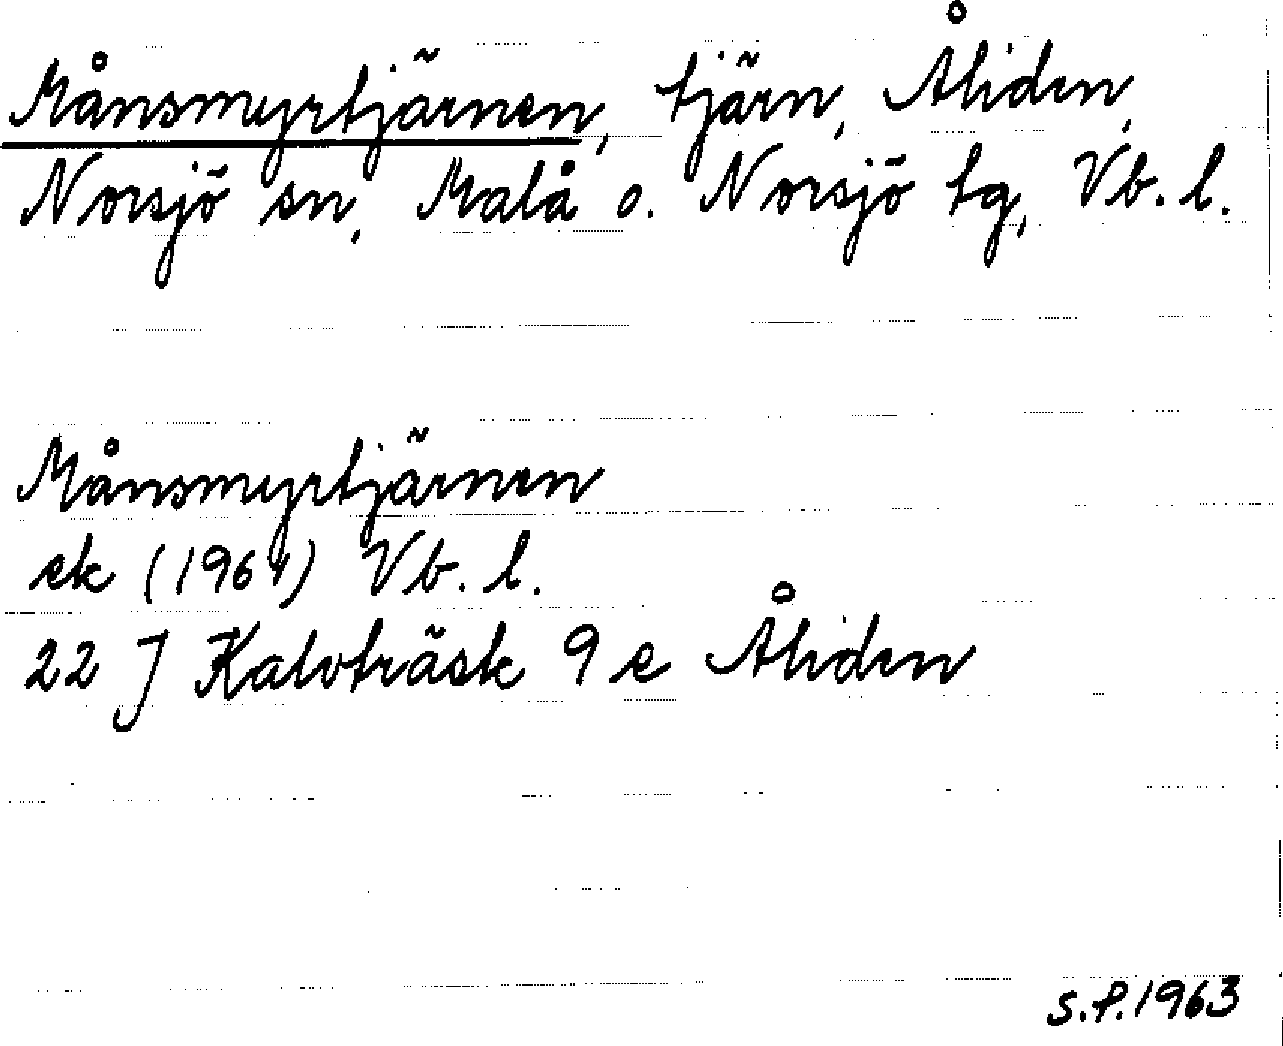 Månsmyrtjärnen, tjärn, Åliden,
Norsjö sn, Malå o. Norsjö tg, Vb. l.
Månsmyrtjärnen
ek (1961) Vb. l.
22 J Kalvträsk 9 e Åliden
S.P. 1963